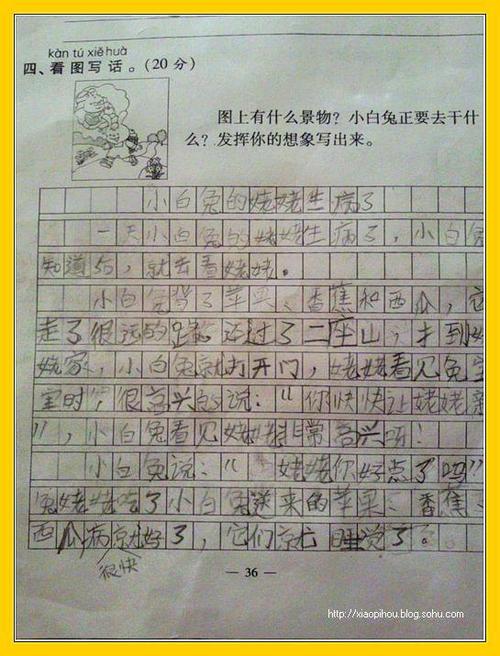 kàn tú xiě huà
四、看图写话。(20分)
图上有什么景物?小白兔正要去干什
么?发挥你的想象写出来。
小白兔的姥姥生病了
一天小白兔的姥姥生病了,小白兔
知道后,就去看姥姥。
小白兔背了苹果、香蕉和西瓜,它
走了很远的路还过了二座山,才到姥
姥家,小白兔就打开门,姥姥看见兔宝
宝时,很高兴的说:“你快快让姥姥亲
”,小白兔看见姥姥非常高兴
小白兔说:“姥姥你好点了吗”
兔姥姥吃了小白兔送来的苹果、香蕉、
西瓜病就好了,它们就睡觉了。
很快
— 36 —
http://xiaopihou.blog.sohu.com